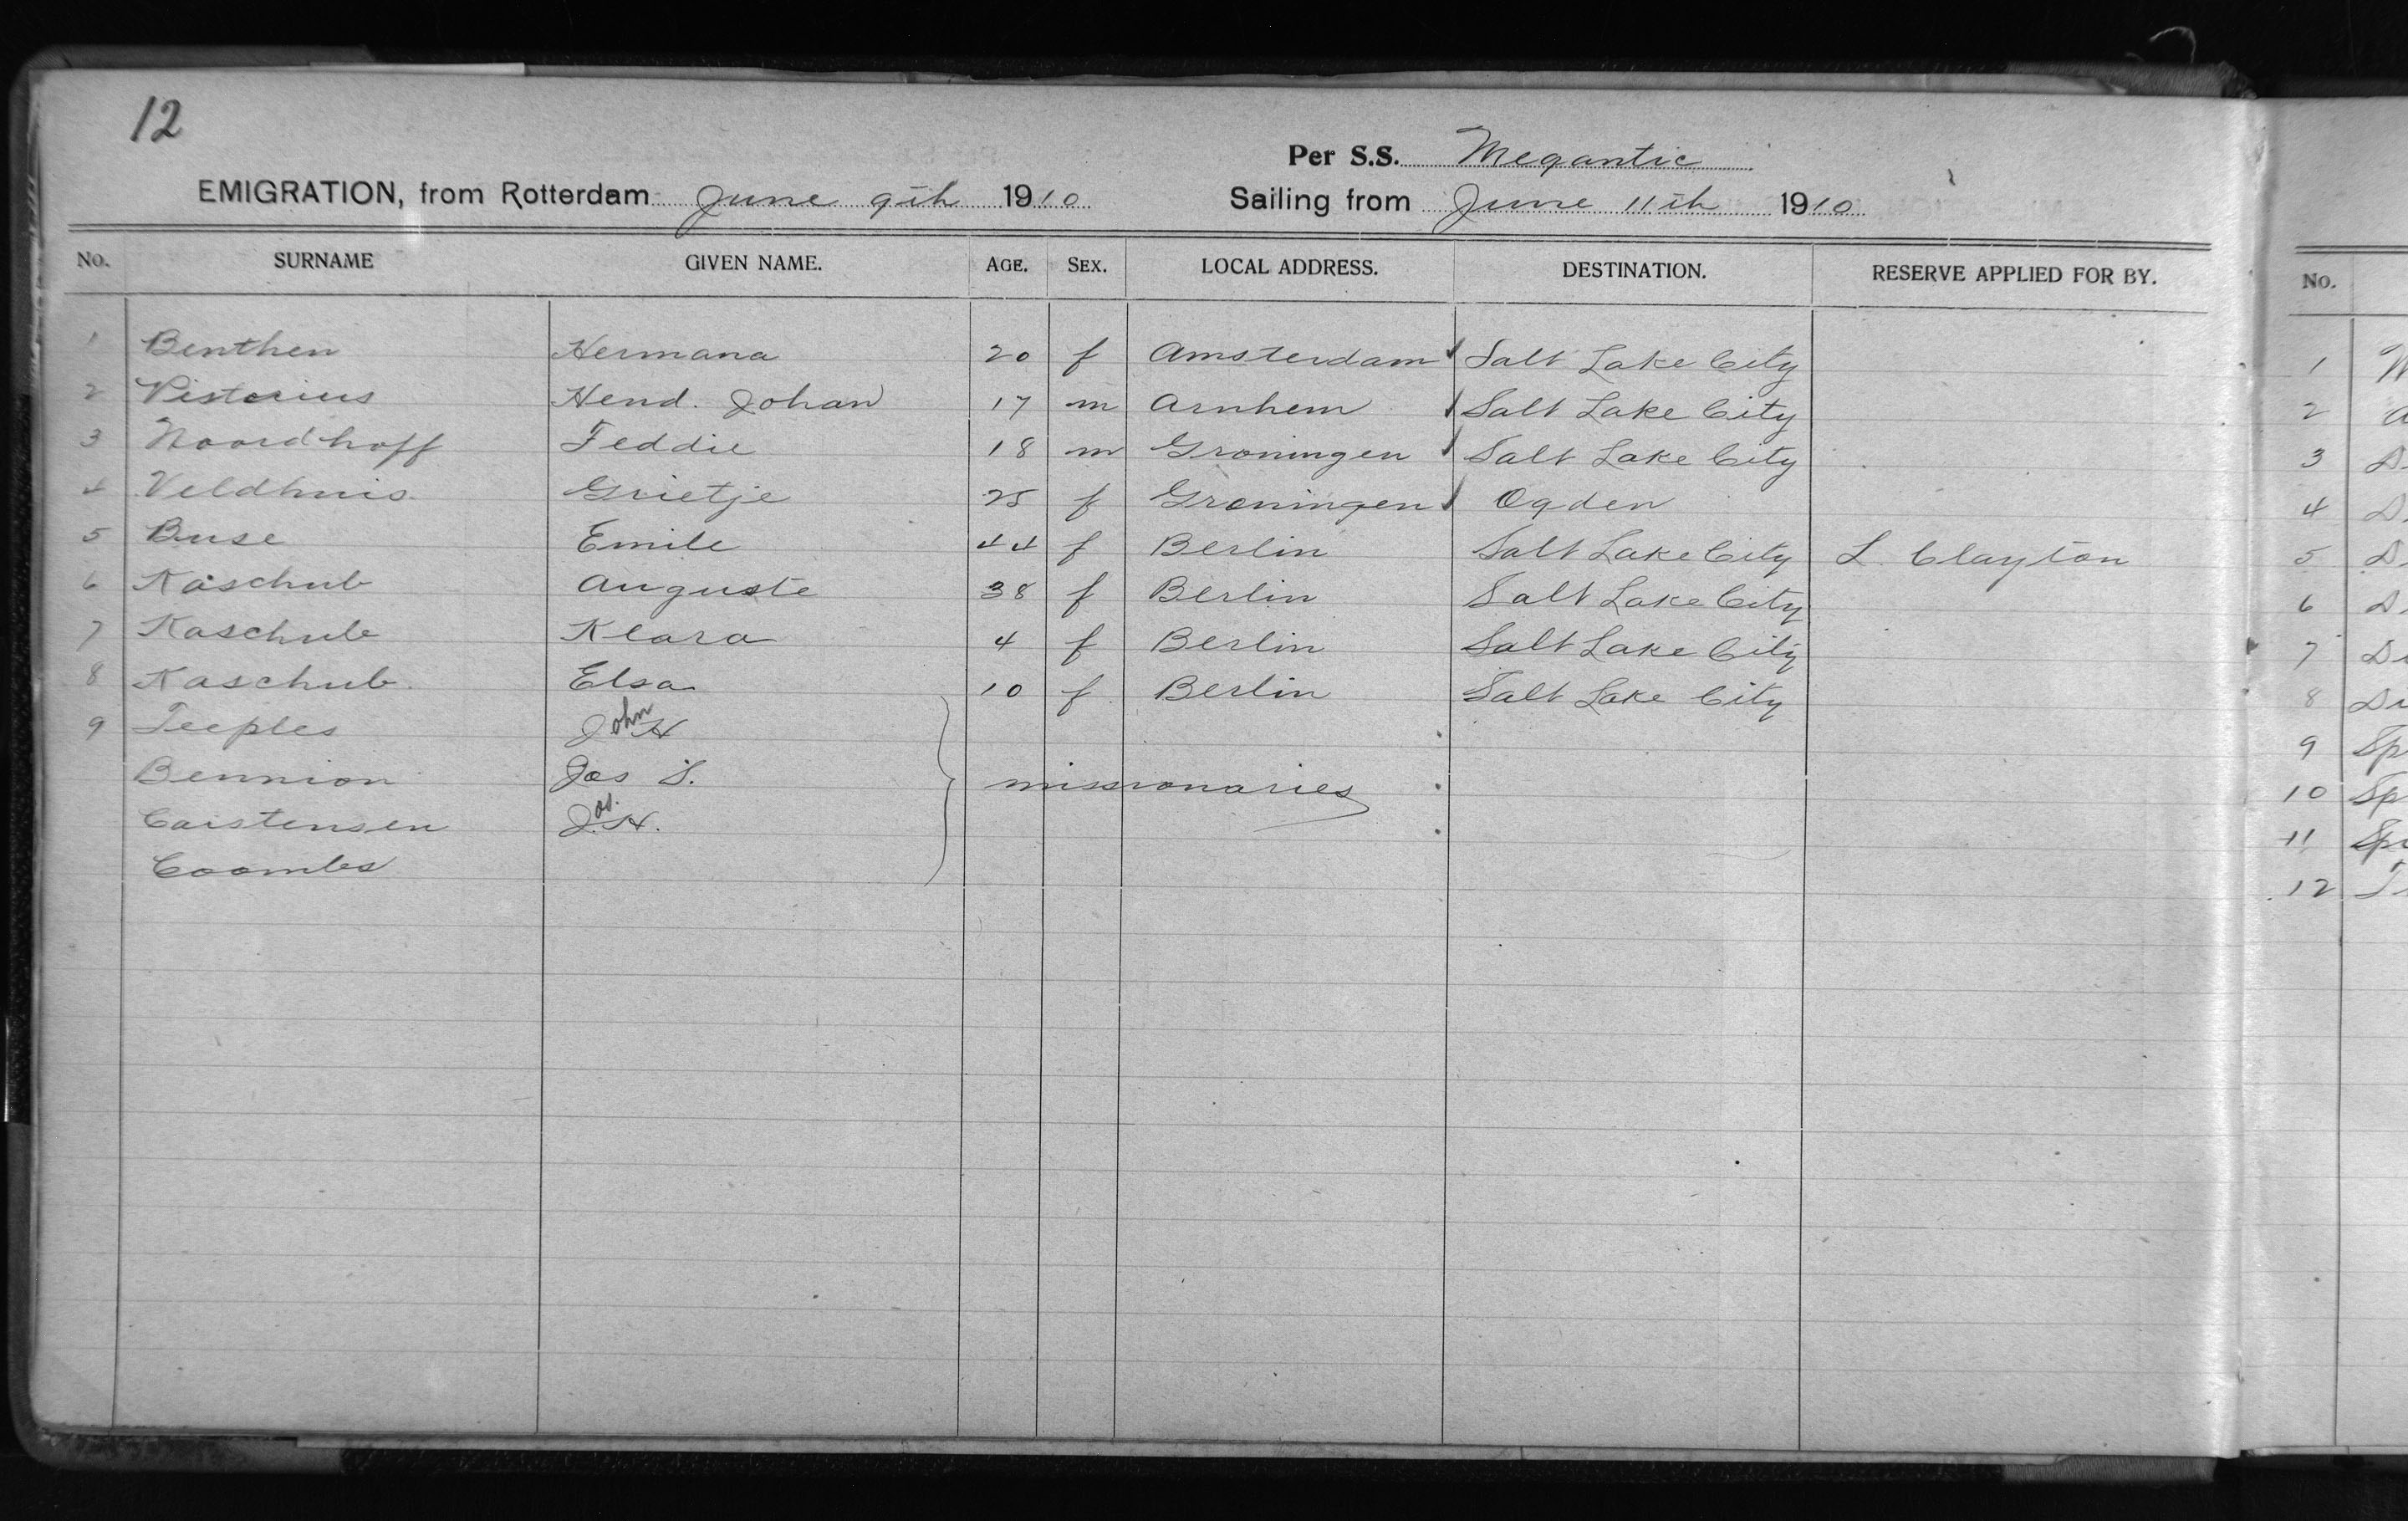 12
Per S.S. Megantic
EMIGRATION, from Rotterdam June 9th 1910 Sailing from June 11th 1910
No. SURNAME GIVEN NAME. AGE. SEX. LOCAL ADDRESS. DESTINATION. RESERVE APPLIED FOR BY.
1 Benthen Hermana 20 f Amsterdam Salt Lake City
2 Pistorius Hend. Johan 17 m Arnhem Salt Lake City
3 Noordhoff Feddie 18 m Groningen Salt Lake City
4 Veldhuis Grietje 25 f Groningen Ogden
5 Buse Emile 44 f Berlin Salt Lake City L. Clayton
6 Kaschub Auguste 38 f Berlin Salt Lake City
7 Kaschub Klara 4 f Berlin Salt Lake City
8 Kaschub. Elsa 10 f Berlin Salt Lake City
9 Teeples John H
Bennion Jos S. missionaries
Carstensen Jos. H.
Coombs
No.
1
2
3
4
5
6
7
8
9 Sp
10 Sp
11 Sp
12